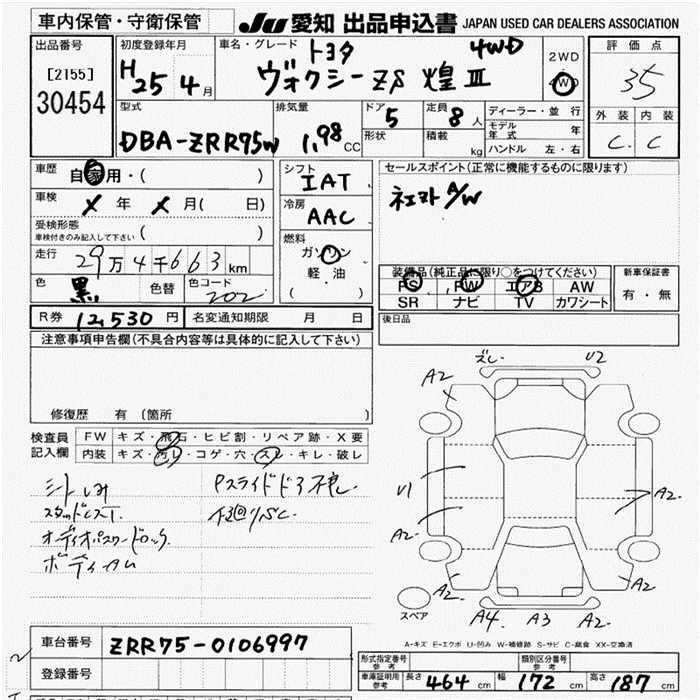 車内保管・守衛保管
JU 愛知 出品申込書 JAPAN USED CAR DEALERS ASSOCIATION
出品番号
[2155]
30454
初度登録年月
H25 4月
車名・グレード
トヨタ 4WD
ヴォクシーZS 煌Ⅲ
2WD
4WD
評価点
35
外装 内装
C. C
型式
DBA-ZRR75W
排気量
1.98 CC
ドア
5
形状
定員
8人
積載 kg
ディーラー・並行
モデル年式 年
ハンドル 左・右
車歴
自家用・( )
車検 X 年 X 月( 日)
受検形態
車検付きのみ記入して下さい ( )
走行 29万4千663km
色 黒 色替 色コード 202
シフト
IAT
冷房
AAC
燃料
ガソリン
軽油
( )
セールスポイント(正常に機能するものに限ります)
ネエマト A/W
装備品(純正品に限り○をつけてください)
PS PW エアB AW
SR ナビ TV カワシート
新車保証書
有・無
R券 12,530円 名変通知期限 月 日
後日品
注意事項申告欄(不具合内容等は具体的に記入して下さい)
修復歴 有 (箇所 )
検査員記入欄
FW キズ・飛石・ヒビ割・リペア跡・X要
内装 キズ・汚レ・コゲ・穴・スレ・キレ・破レ
シートしみ
オーディオパスワードロック
ズレ U2
A2
U1
A2
A2
A2
A2
A4 A3 A2
スペア
A-キズ E-エクボ U-凹み W-補修跡 S-サビ C-腐食 XX-交換済
車台番号 ZRR75-0106997
登録番号
形式指定番号 参考
類別区分番号 参考
車庫証明用 参考 長さ 464 cm 幅 172 cm 高さ 187 cm